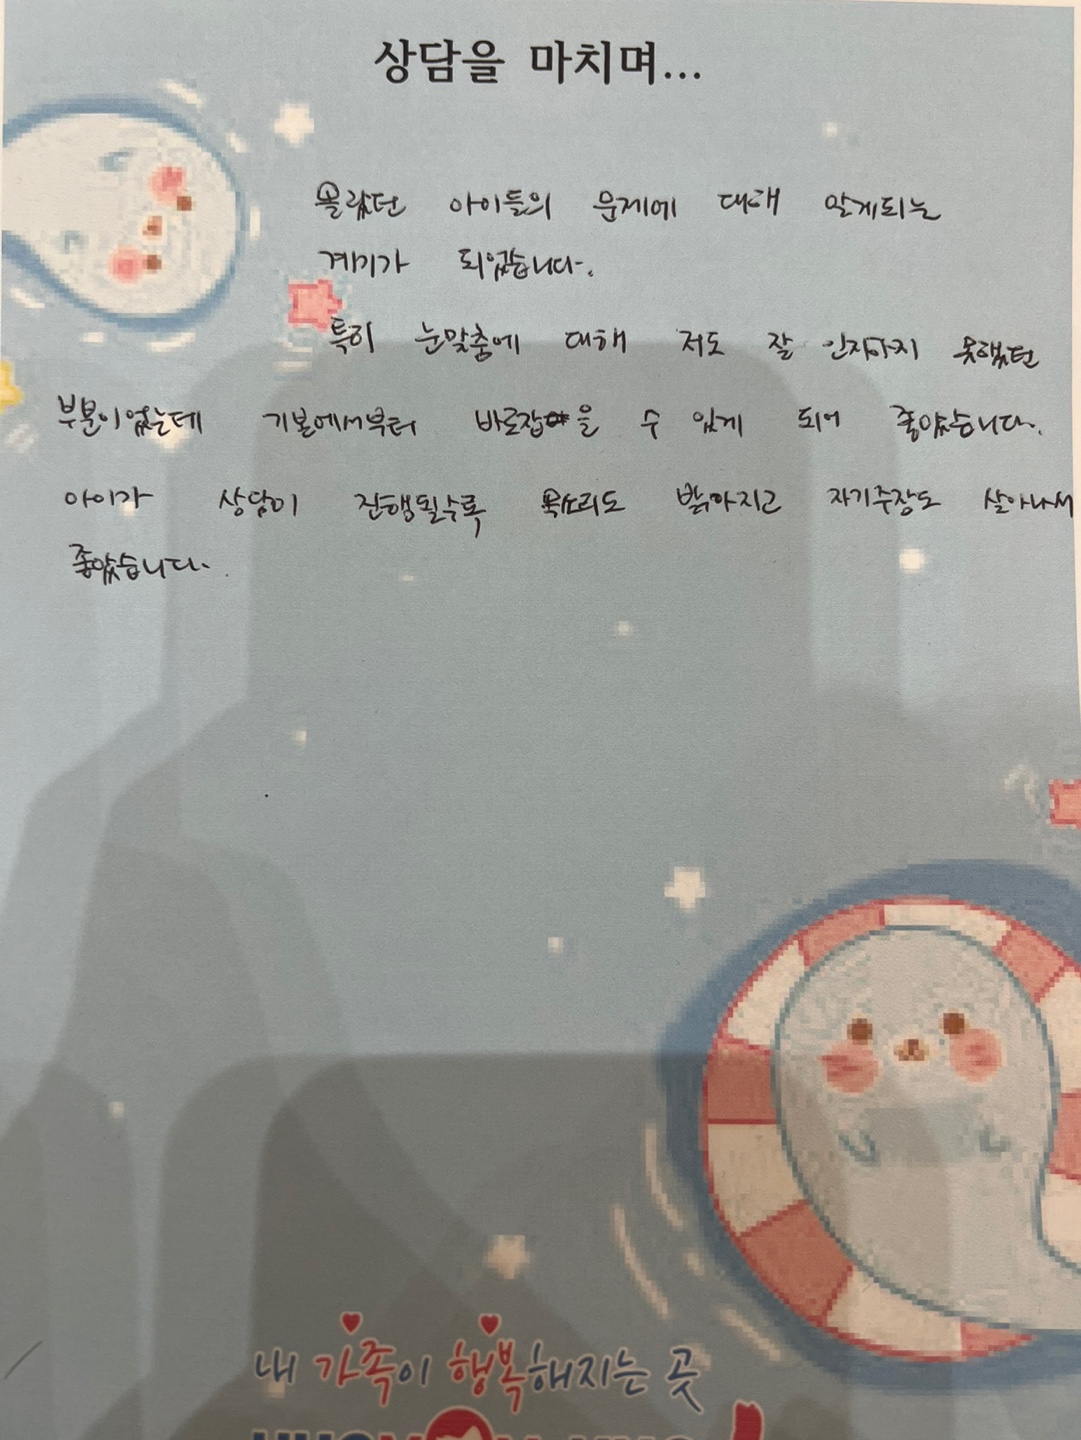 상담을 마치며...
몰랐던 아이들의 문제에 대해 알게되는
계기가 되었습니다.
특히 눈맞춤에 대해 저도 잘 인지하지 못했던
부분이었는데 기본에서부터 바로잡을 수 있게 되어 좋았습니다.
아이가 상담이 진행될수록 목소리도 밝아지고 자기주장도 살아나서
좋았습니다.
내 가족이 행복해지는 곳